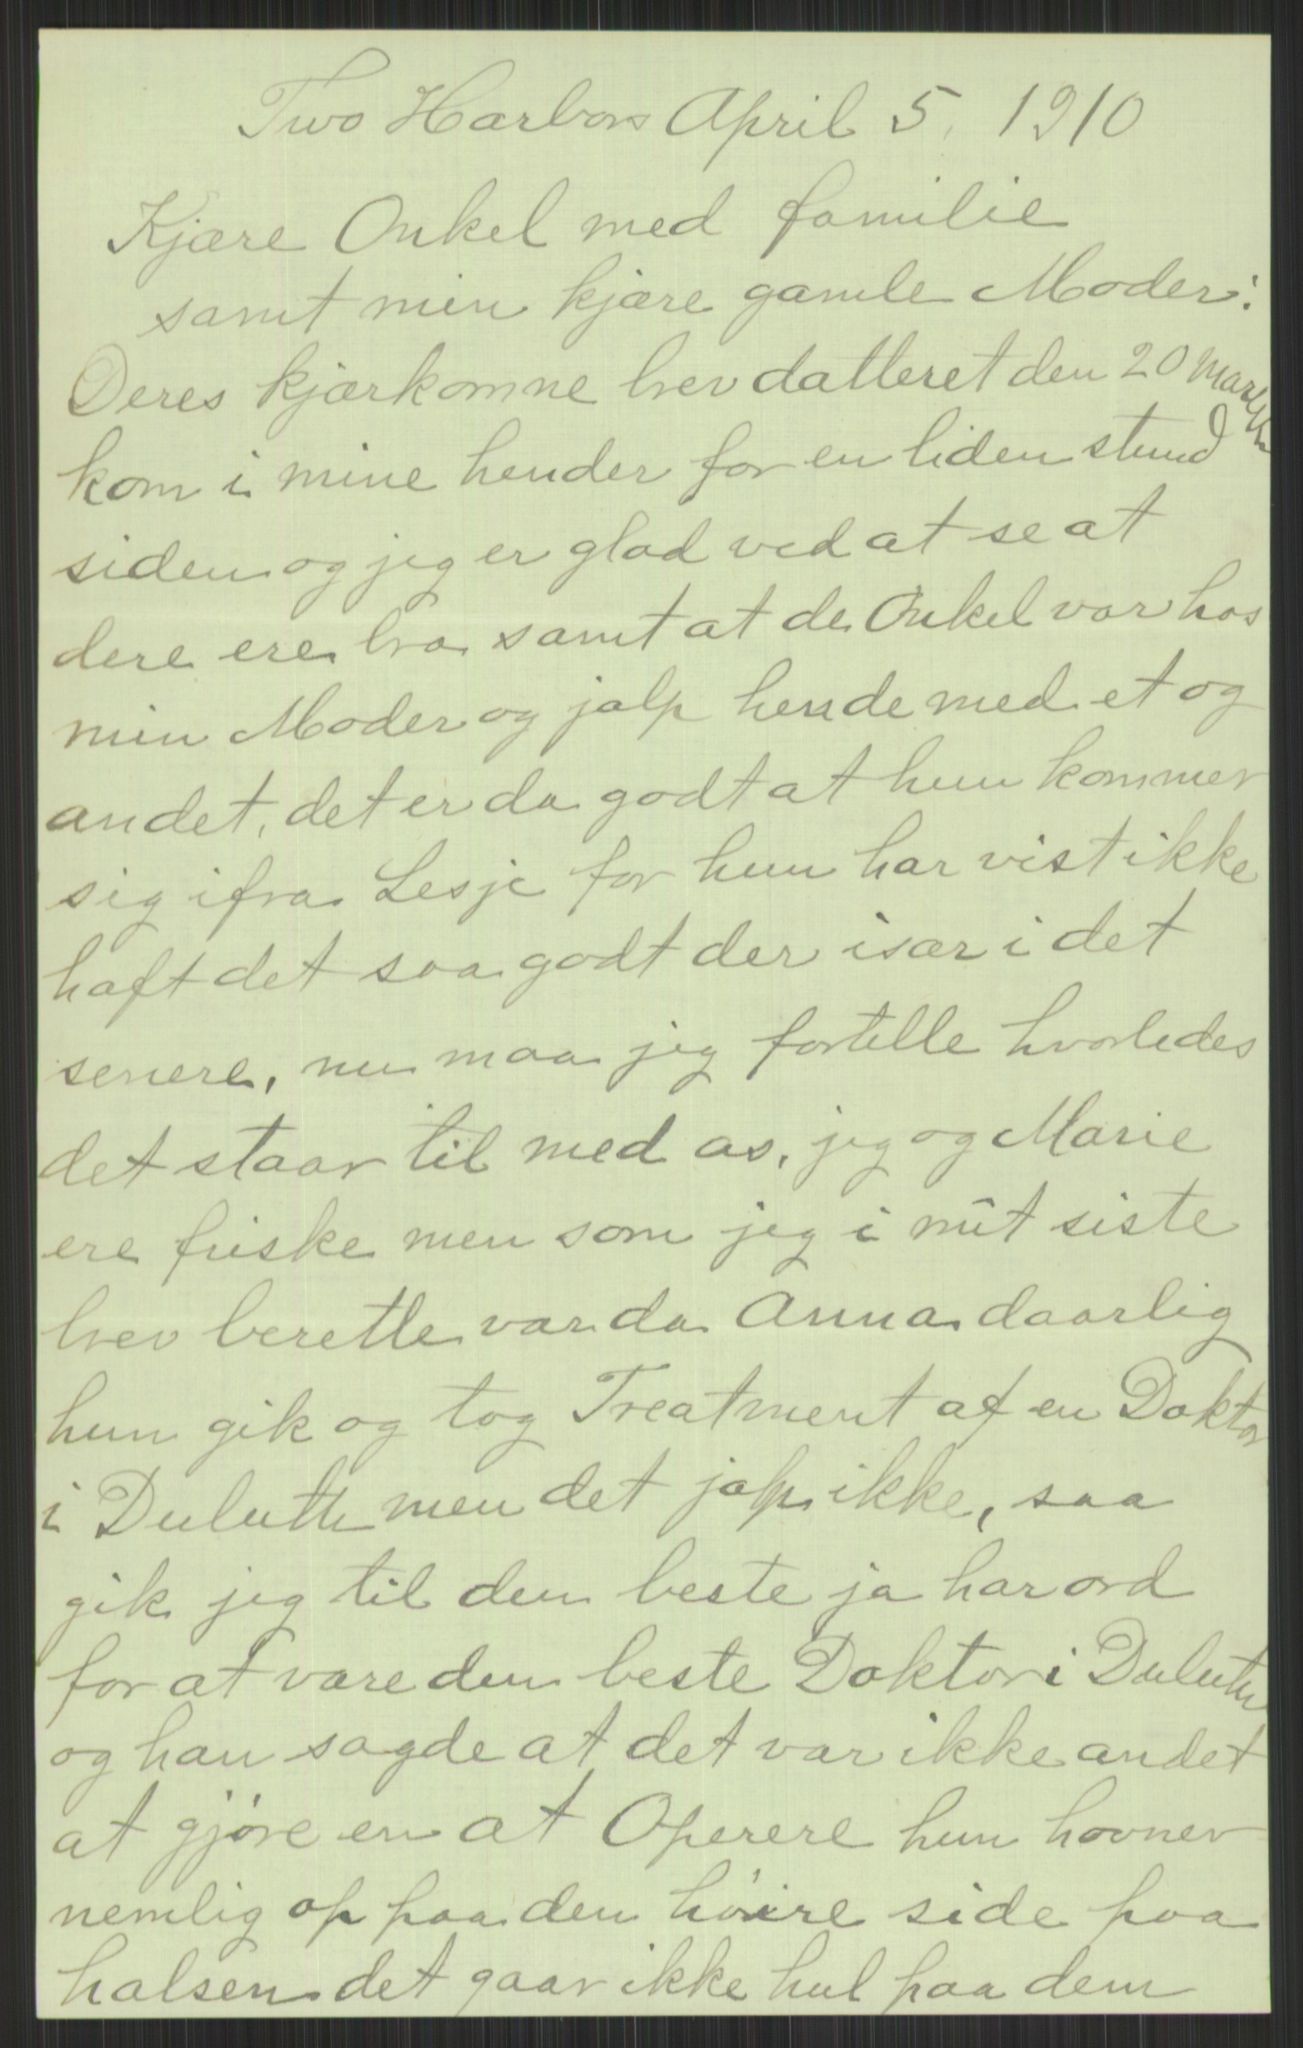 Two Harbors April 5, 1910
Kjære Onkel med familie
samt min kjære gamle Moder:
Deres kjærkomne brev datteret den 20 March
kom i mine hender for en liden stund
siden og jeg er glad ved at se at
dere ere bra samt at de Onkel var hos
min Moder og jalp hende med et og
andet, det er da godt at hun kommer
sig ifra Lesje for hun har vist ikke
haft det saa godt der især i det
senere, nu maa jeg fortelle hvorledes
det staar til med os, jeg og Marie
ere friske men som jeg i mit siste
brev berette var da Anna daarlig
hun gik og tog Treatment af en Doktor
i Duluth men det jalp ikke, saa
gik jeg til den beste ja har ord
for at være den beste Doktor i Duluth
og han sagde at det var ikke andet
at gjøre en at Operere hun hovner
nemlig op paa den høire side paa
halsen det gaar ikke hul paa dem